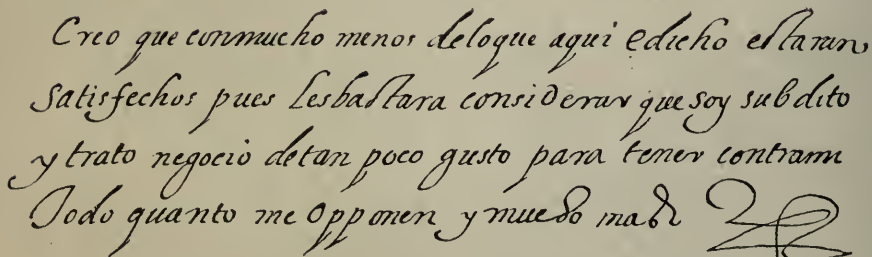 Creo que conmucho menos deloque aqui e dicho estaran
satisfechos pues lesbastara considerar que soy subdito
y trato negocio detan poco gusto para tener contrami
Todo quanto me opponen y mucho mas